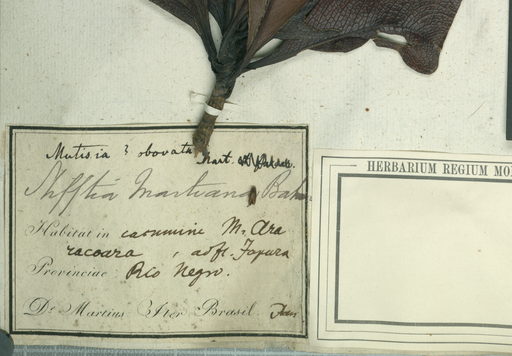 Mutisia ? obovata Mart.
Stifftia Martiana Baker
Habitat in cacumine M. Ara
racoara, ad fl. Japura
Provinciae Rio Negro.
Dr Martius Iter Brasil.
HERBARIUM REGIUM MO